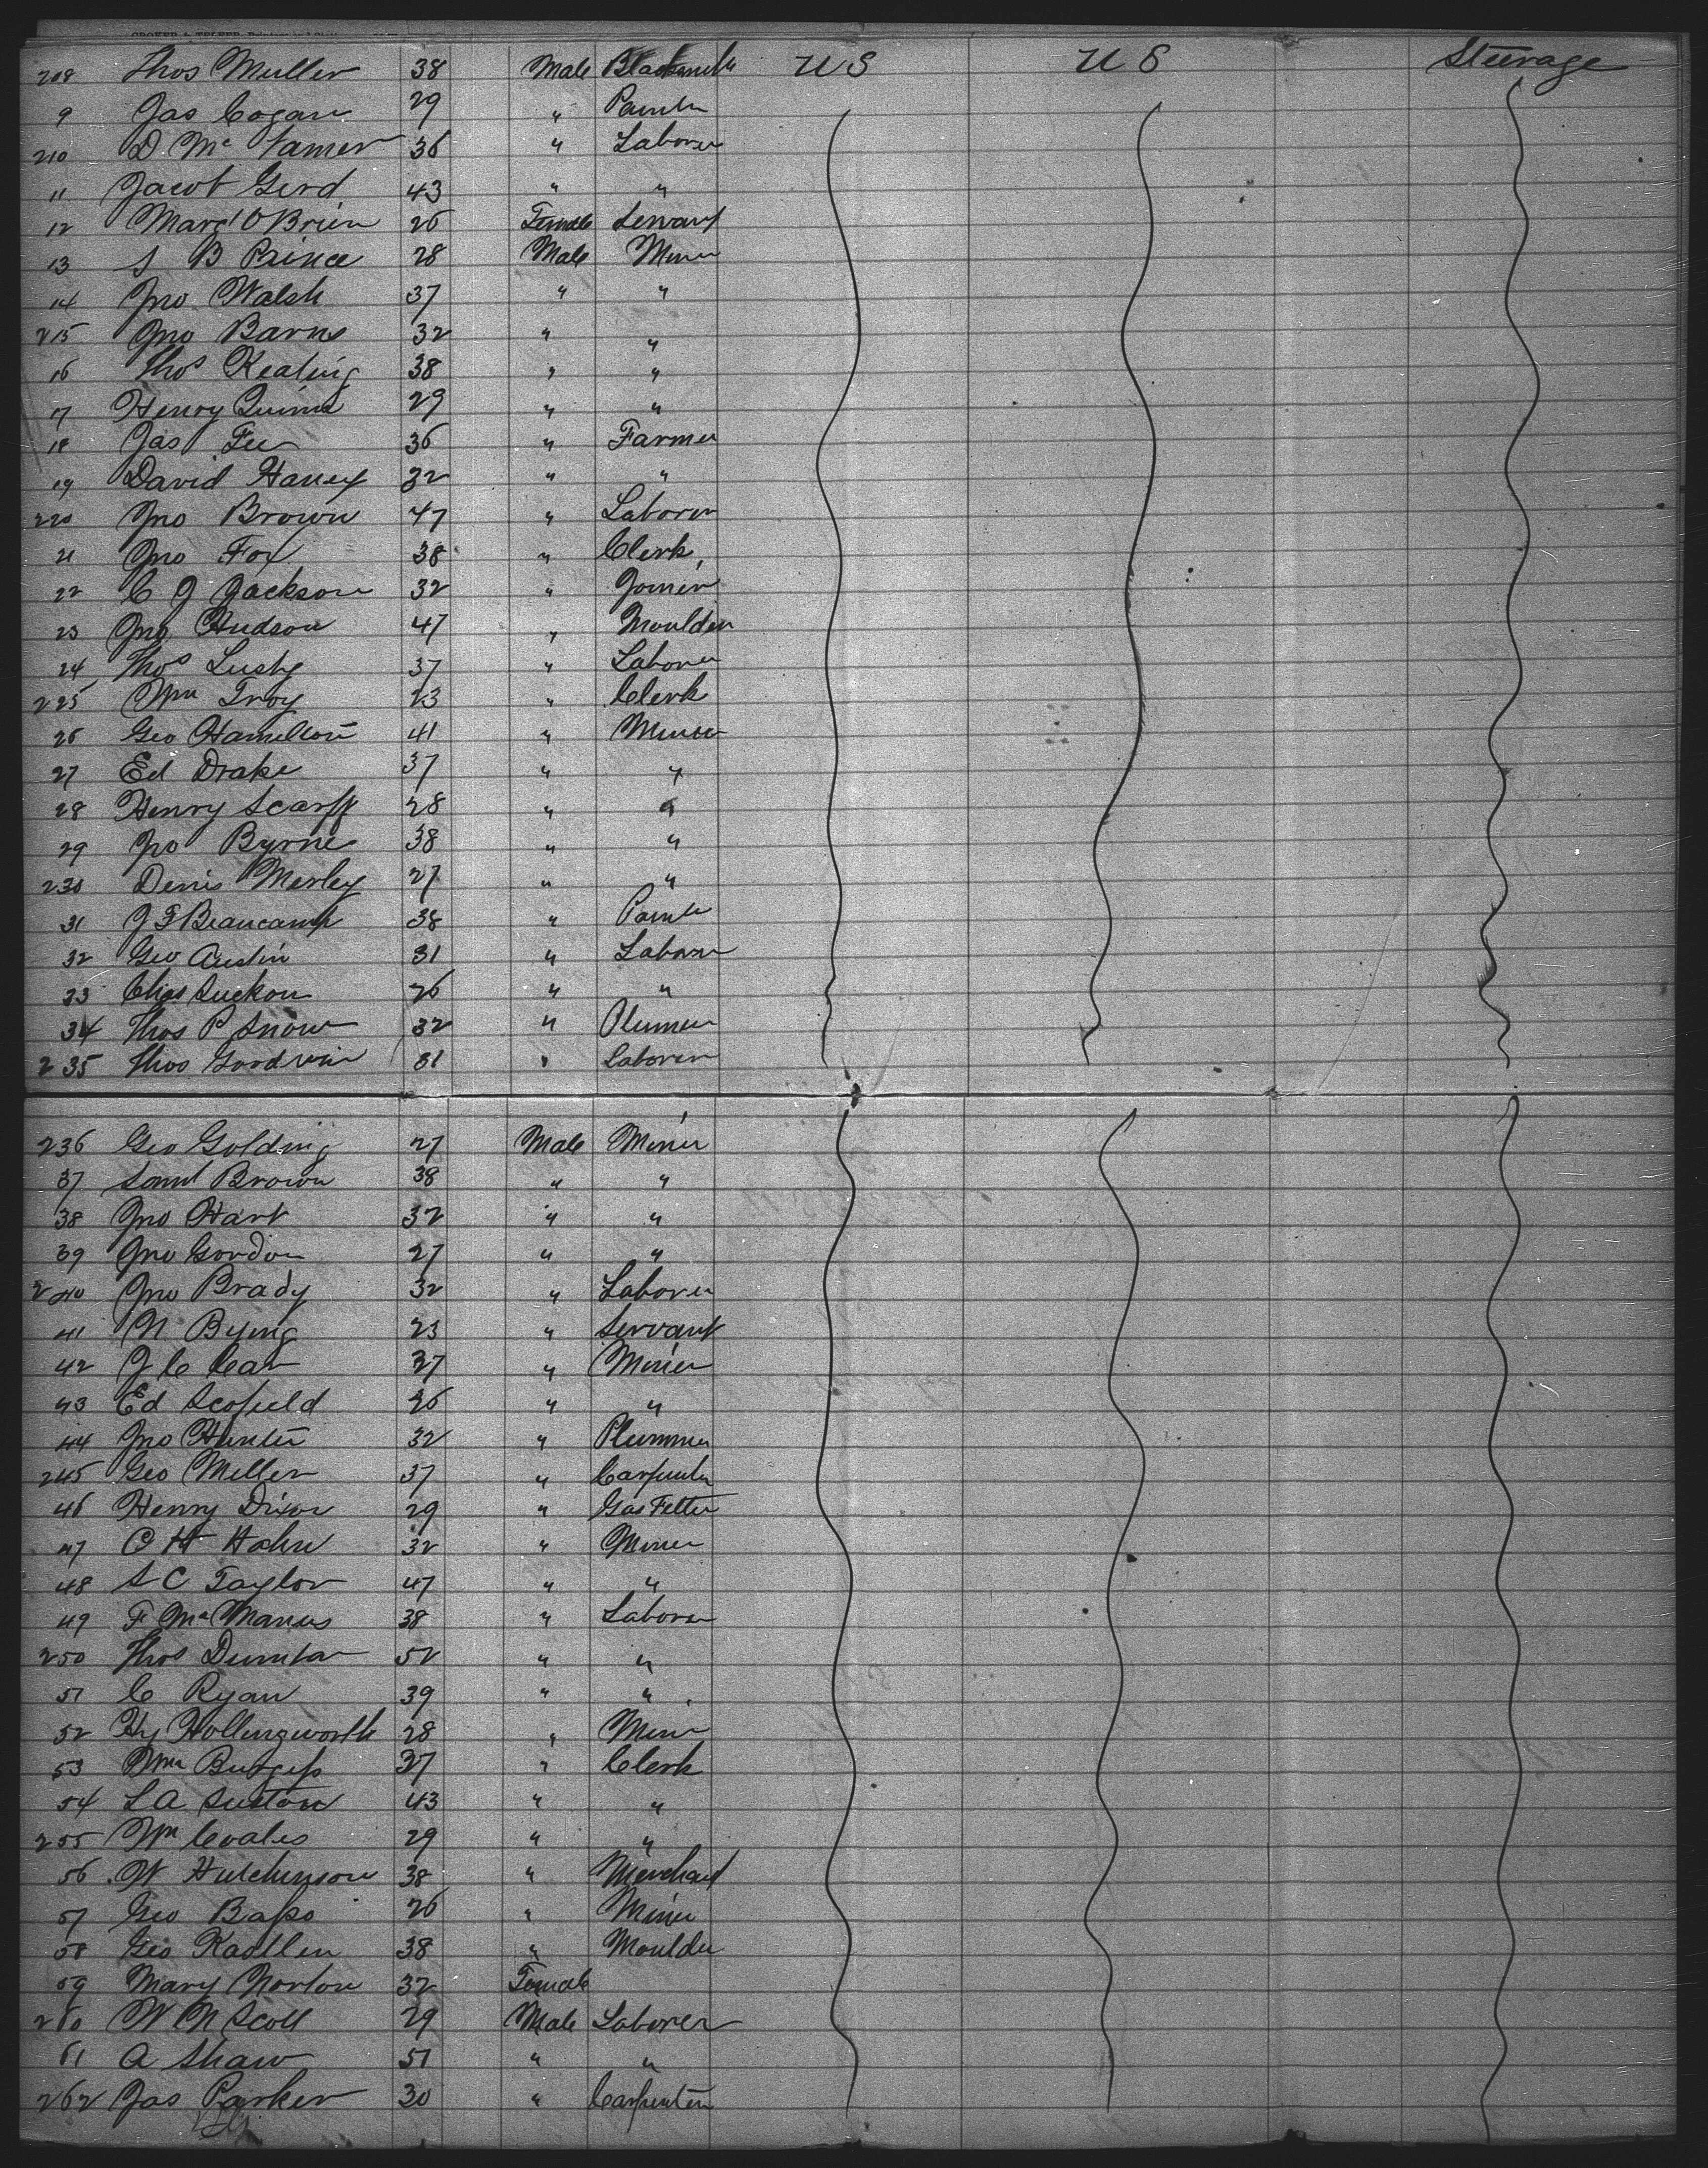 208 Thos Muller 38 Male Blacksmith U S U S Steerage
9 Jas Cogan 29 " Painter
210 D. Mc 36 " Laborer
11 Jacob Gerd 43 " "
12 Margt O'Brien 26 Female Servant
13 S B Prince 28 Male Miner
14 Jno Walsh 37 " "
215 Jno Barns 32 " "
16 Thos Keating 38 " "
17 Henry Quinn 29 " "
18 Jas Fee 36 " Farmer
19 David Haney 32 " "
220 Jno Brown 47 " Laborer
21 Jno Fox 38 " Clerk
22 C J Jackson 32 " Joiner
23 Jno Hudson 47 " Moulder
24 Thos Lusby 37 " Laborer
225 Wm Troy 23 " Clerk
26 Geo Hamilton 41 " Miner
27 Ed Drake 37 " "
28 Henry Scarff 28 " "
29 Jno Byrne 38 " "
230 Denis Merley 27 " "
31 J F Beaucamp 38 " Painter
32 Geo Austin 31 " Laborer
33 Chas Suckow 26 " "
34 Thos P Snow 32 " Plumer
235 Thos Goodwin 31 " Laborer
236 Geo Golding 27 Male Miner
37 Saml Brown 38 " "
38 Jno Hart 32 " "
39 Jno Gordon 27 " "
240 Jno Brady 32 " Laborer
41 N Byng 23 " Servant
42 J C Car 37 " Miner
43 Ed Scofield 26 " "
44 Jno Hunter 32 " Plummer
245 Geo Miller 37 " Carpenter
46 Henry Dixon 29 " Gas Fetter
47 C H Hahn 32 " Miner
48 S C Taylor 47 " "
49 F McManus 38 " Laborer
250 Thos 52 " "
51 C Ryan 39 " "
52 Hy Hollingworth 28 " Miner
53 Wm Burgess 37 " Clerk
54 L A Sutton 43 " "
255 Wm Coates 29 " "
56 W Hutchinson 38 " Merchant
57 Geo Bass 26 " Miner
58 Geo 38 " Moulder
59 Mary Norton 32 Female
260 W N Scott 29 Male Laborer
61 A Shaw 51 " "
262 Jas Parker 30 " Carpenter